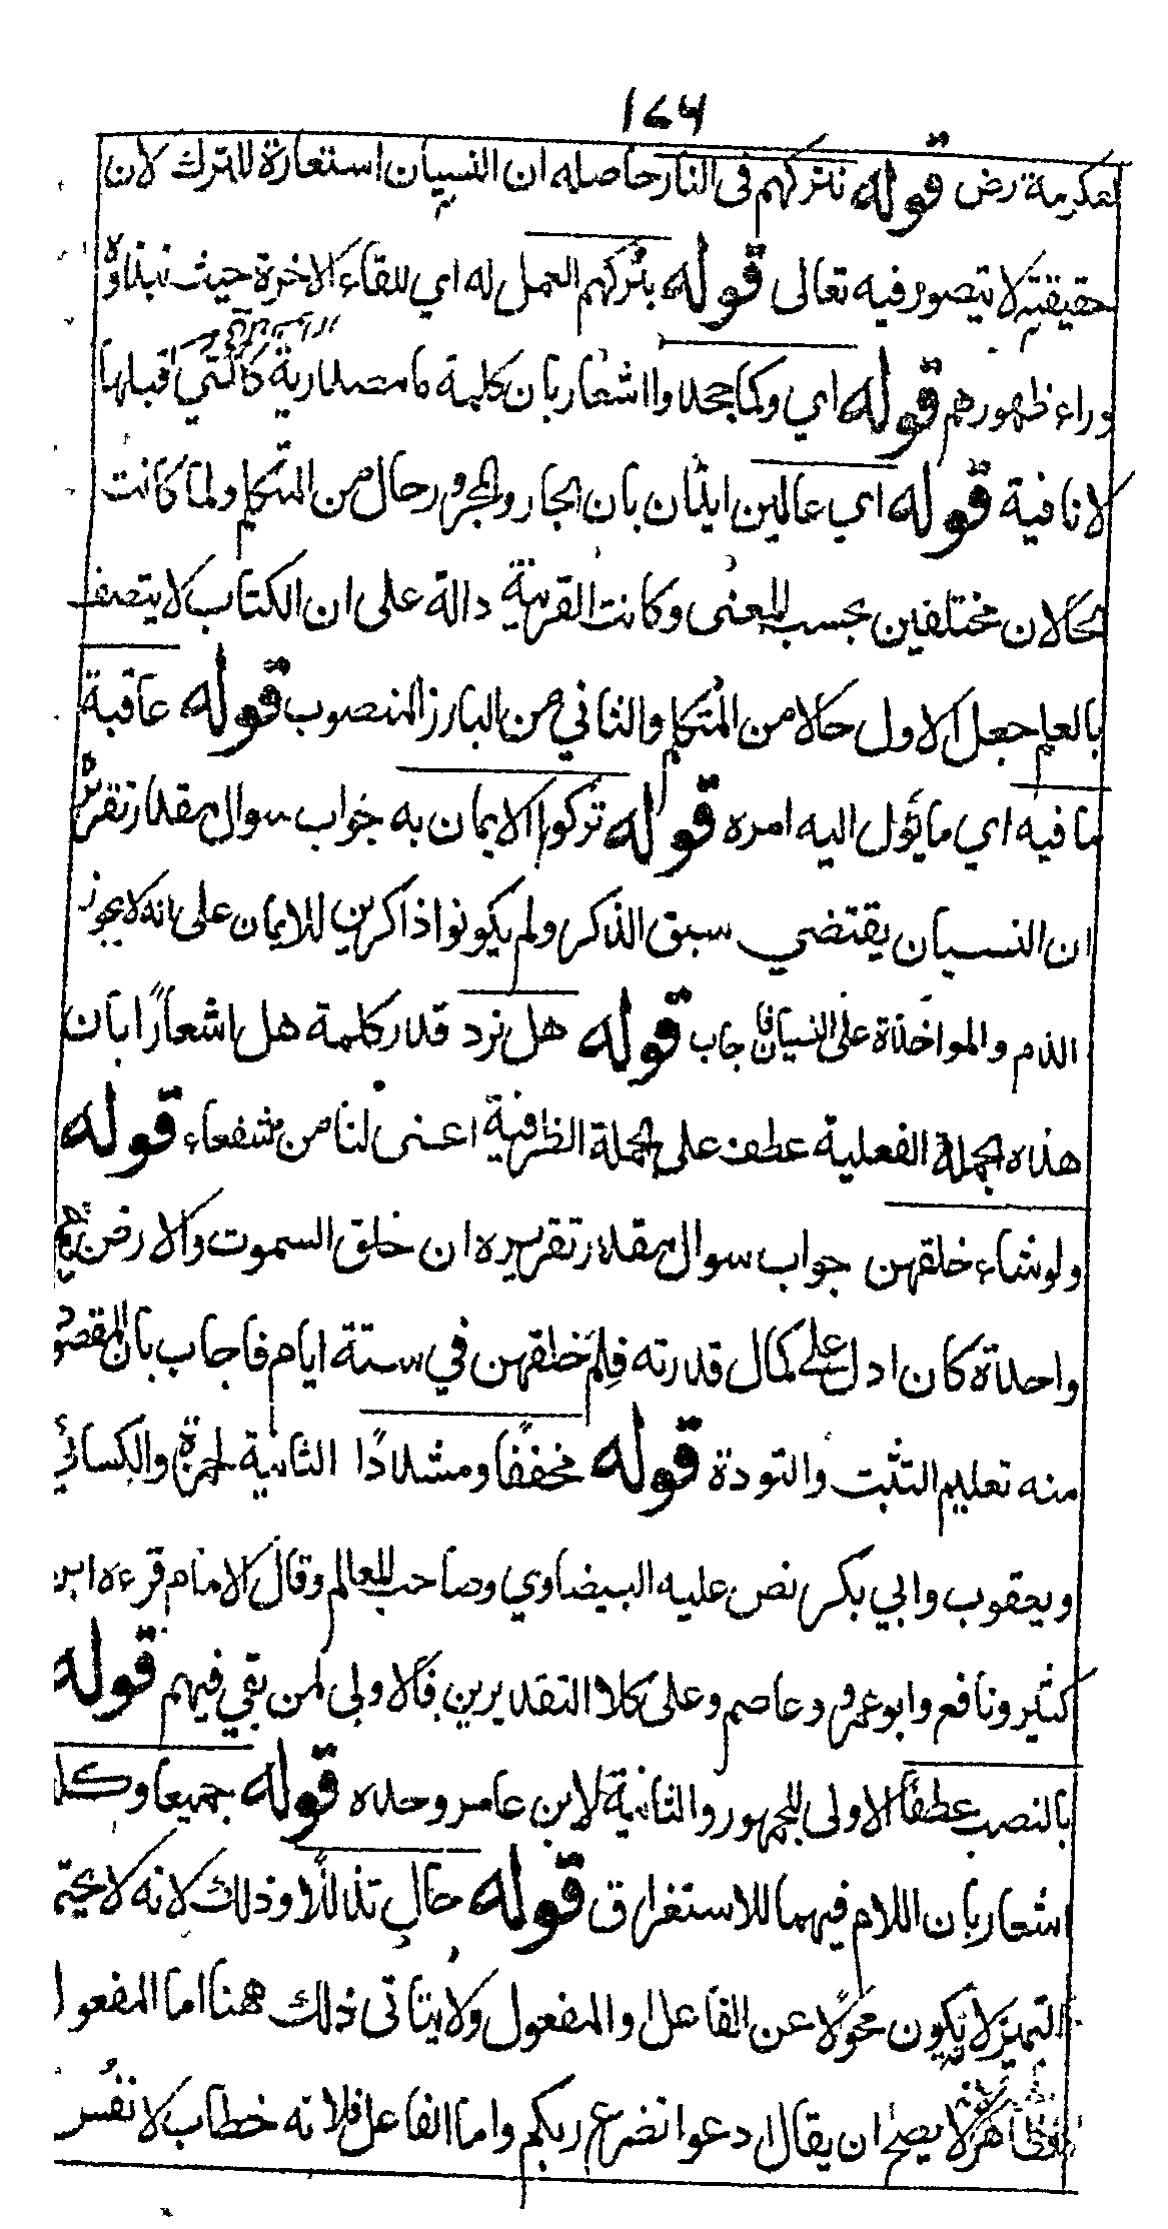 ١٧٦
لعكرمة رض قوله نتركهم فى النار حاصله ان النسيان استعارة للترك لان
حقيقته لا يتصور فيه تعالى قوله بتركهم العمل له اي للقاء الاخرة حيث نبذوه
وراء ظهورهم قوله اي وكما جحدوا اشعار بان كلمة ما مصدرية كالتي قبلها
لا نافية قوله اي عالمين ايذان بان الجار والمجرور حال من المتكلم ولما كانت
الحالان مختلفين بحسب المعنى وكانت القرينة دالة على ان الكتاب لا يتصف
بالعلم جعل الاول حالا من المتكلم والثاني من البارز المنصوب قوله عاقبة
ما فيه اي ما يؤل اليه امره قوله تركوا الايمان به جواب سوال مقدر تقريره
ان النسيان يقتضي سبق الذكر ولم يكونوا ذاكرين للايمان على انه لا يجوز
الذم والمواخذة على النسيان فاجاب قوله هل نرد قدر كلمة هل اشعارًا بان
هذه الجملة الفعلية عطف على الجملة الظرفية اعنى لنا من شفعاء قوله
ولو شاء خلقهن جواب سوال مقدر تقريره ان خلق السموت والارض في
واحدة كان ادل على كمال قدرته فلِمَ خلقهن في ستة ايام فاجاب بان المقصود
منه تعليم التثبت والتودة قوله مخففًا ومشددًا الثانية لحمزة والكسائي
ويعقوب وابي بكر نص عليه البيضاوي وصاحب المعالم وقال الامام قرءه ابن
كثير ونافع وابو عمرو وعاصم وعلى كلا التقديرين فالاولى لمن بقي فيهم قوله
بالنصب عطفًا الاولى للجمهور والثانية لابن عامر وحده قوله جميعا وكله
اشعار بان اللام فيهما للاستغراق قوله حال تذللًا وذلك لانه لا يحتمل
التميز لا يكون محولًا عن الفاعل او المفعول ولا يتاتى ذلك ههنا اما المفعول
فظاهر لا يصلح ان يقال ادعوا تضرع ربكم واما الفاعل فلانه خطاب لا نفس